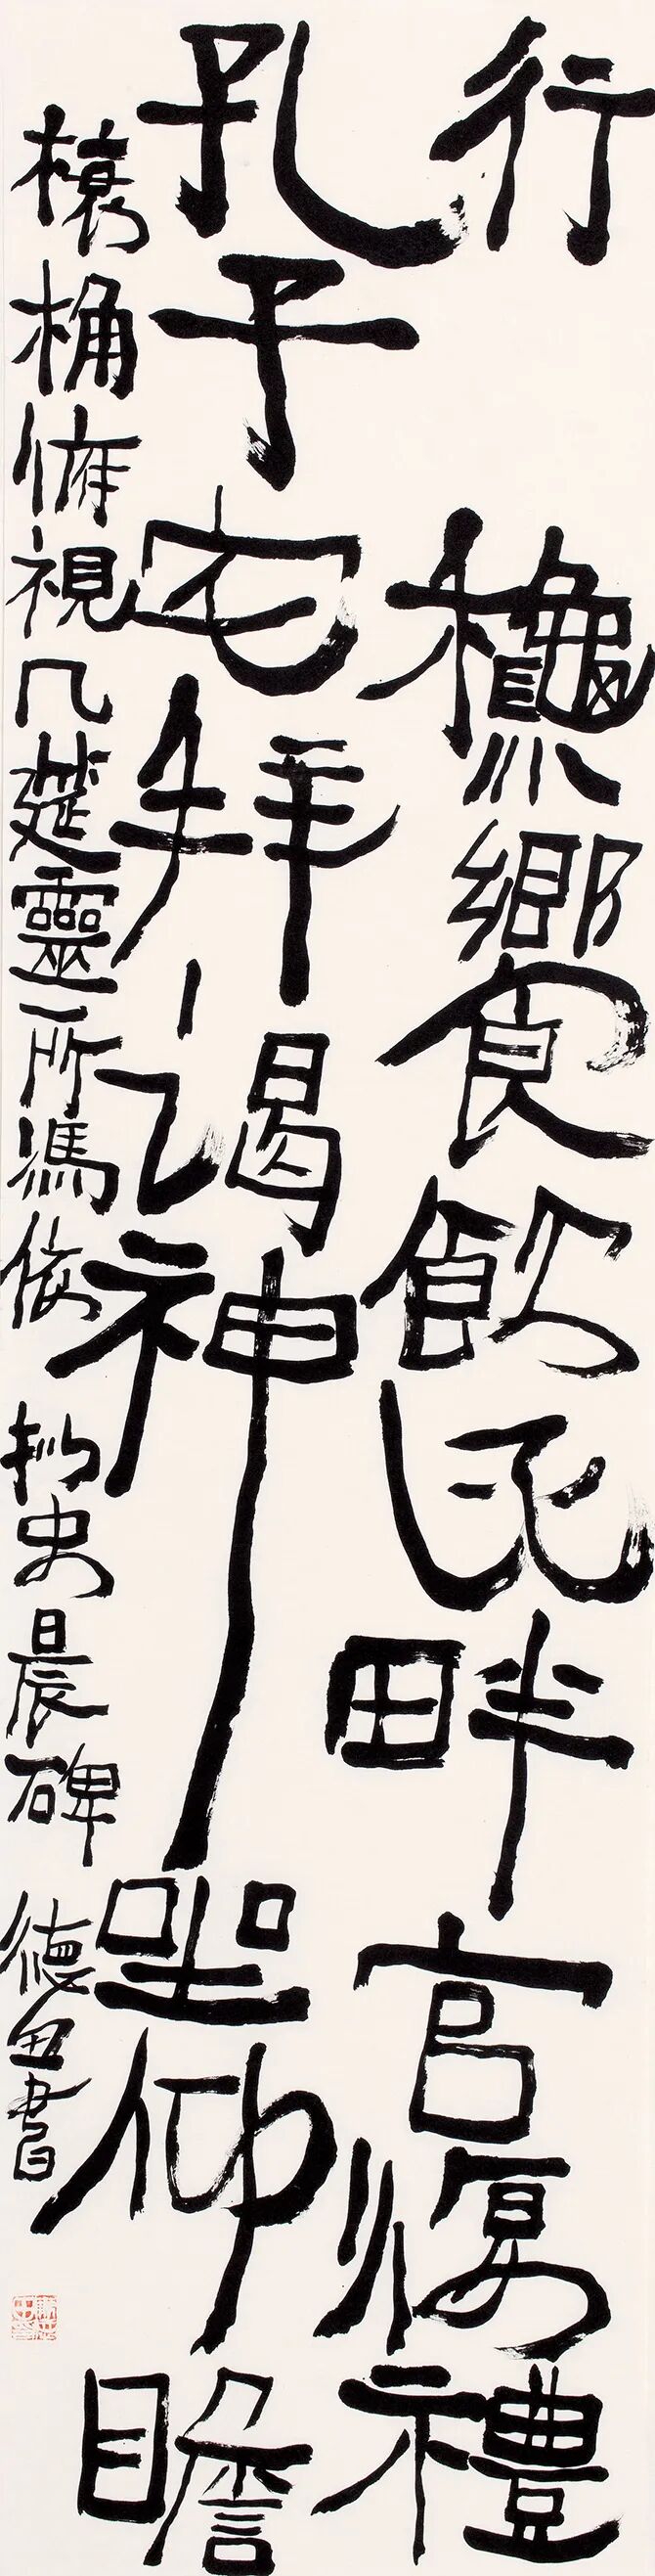 行龝饗飲畔宮復禮
孔子宅拜謁神坐仰瞻
榱桷俯視几筵靈所馮依史晨碑德書